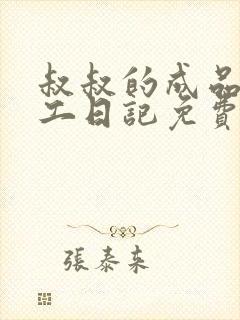 叔叔的成品
工日記免費
張泰来